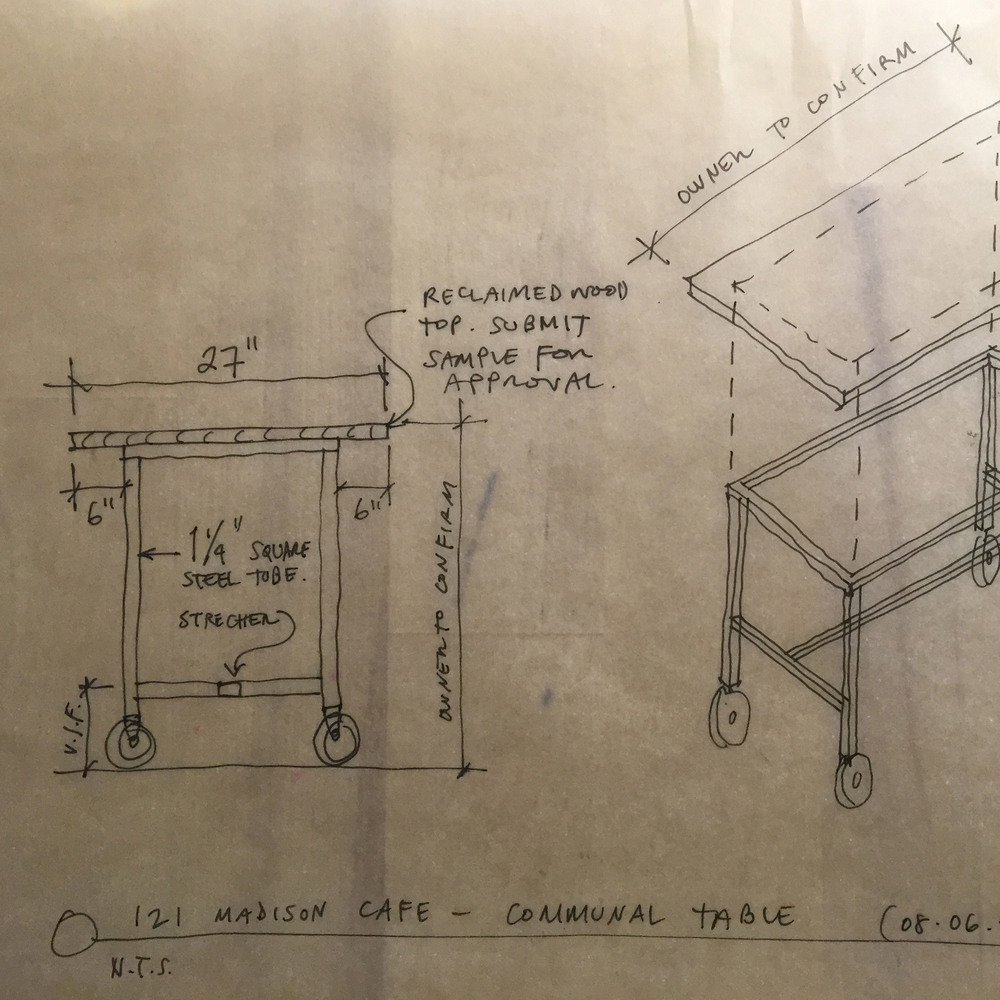 OWNER TO CONFIRM
RECLAIMED WOOD
TOP. SUBMIT
SAMPLE FOR
APPROVAL.
27"
6"
6"
1 1/4" SQUARE
STEEL TUBE.
STRECHER
OWNER TO CONFIRM
V.I.F.
121 MADISON CAFE - COMMUNAL TABLE (08.06.
N.T.S.